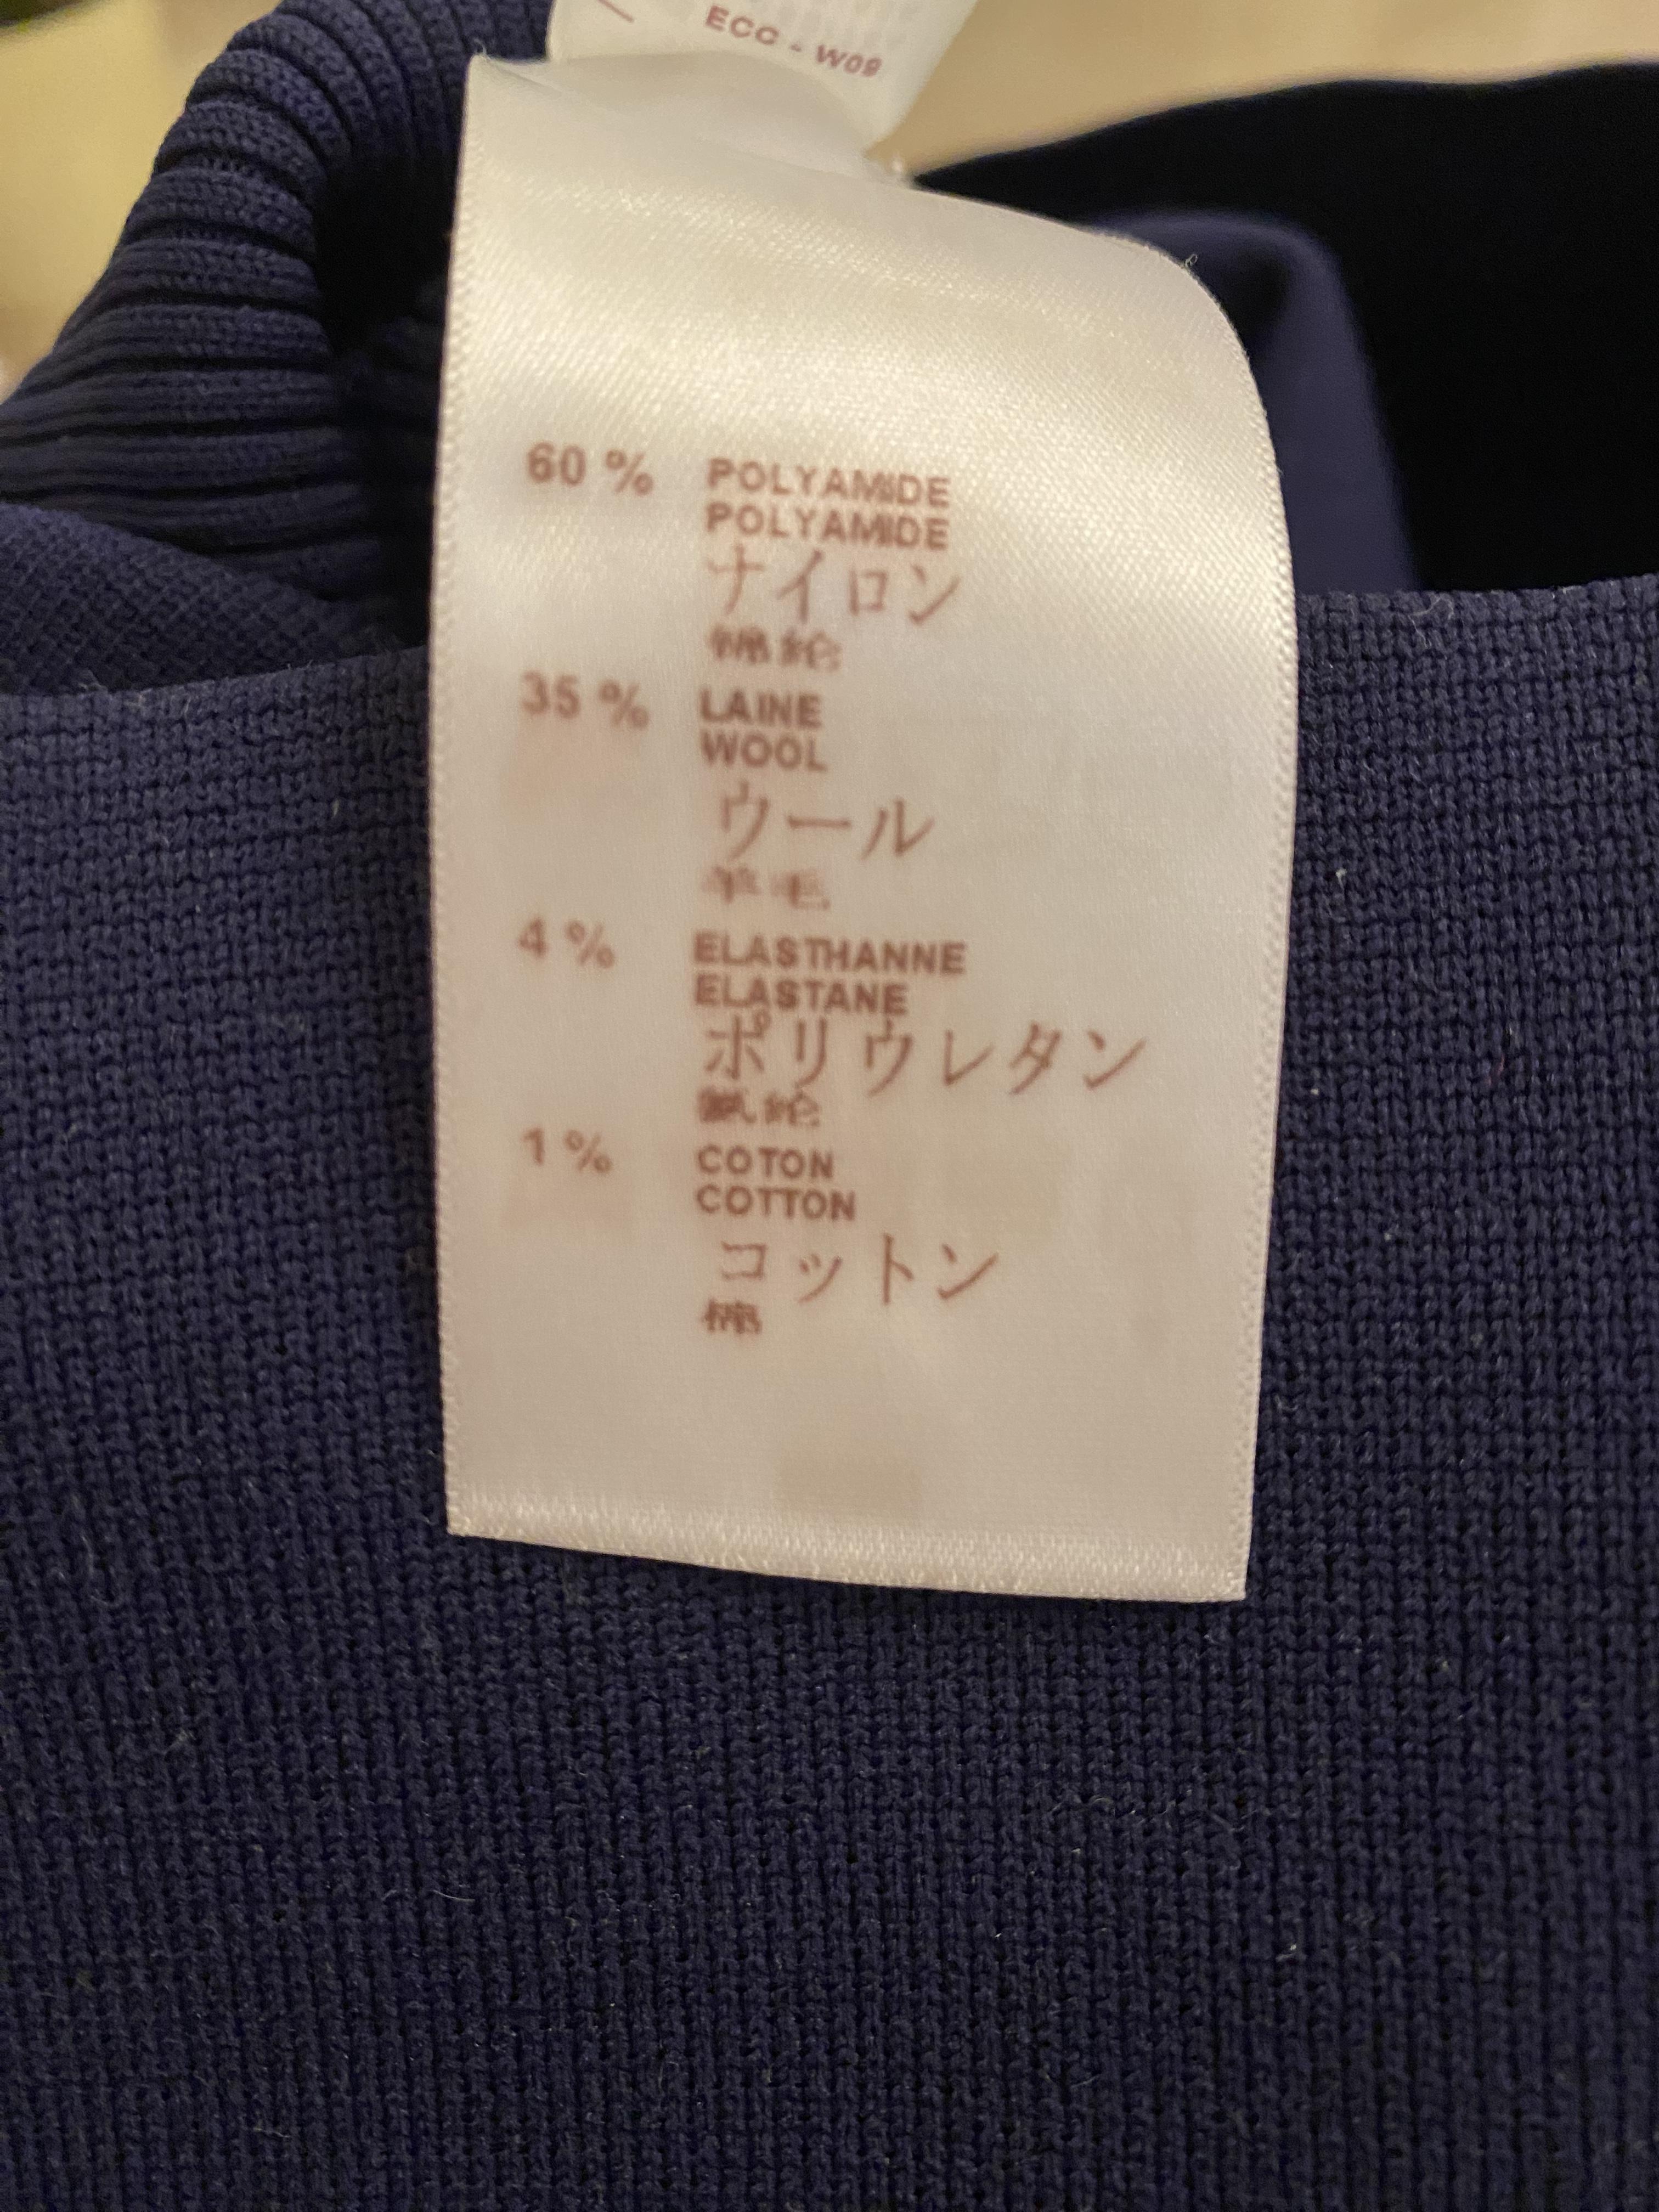 ECC - W09
60 % POLYAMIDE
POLYAMIDE
ナイロン
锦纶
35 % LAINE
WOOL
ウール
羊毛
4 % ELASTHANNE
ELASTANE
ポリウレタン
氨纶
1 % COTON
COTTON
コットン
棉